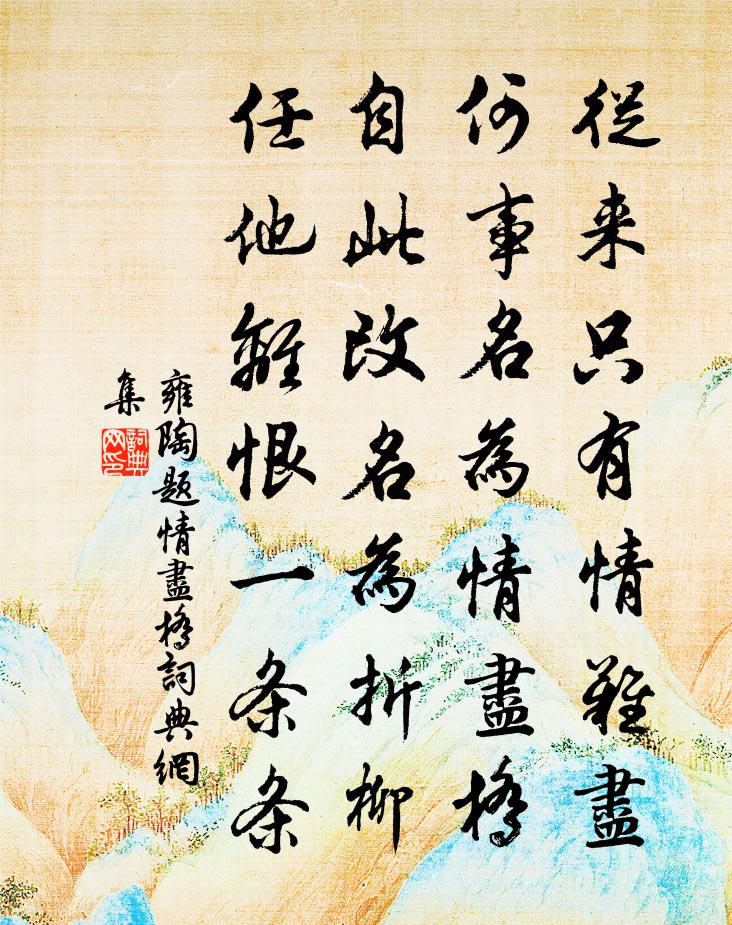 從来只有情難盡
何事名為情盡橋
自此改名為折柳
任他離恨一条条
雍陶题情盡橋詞典網
集
詞典
网印